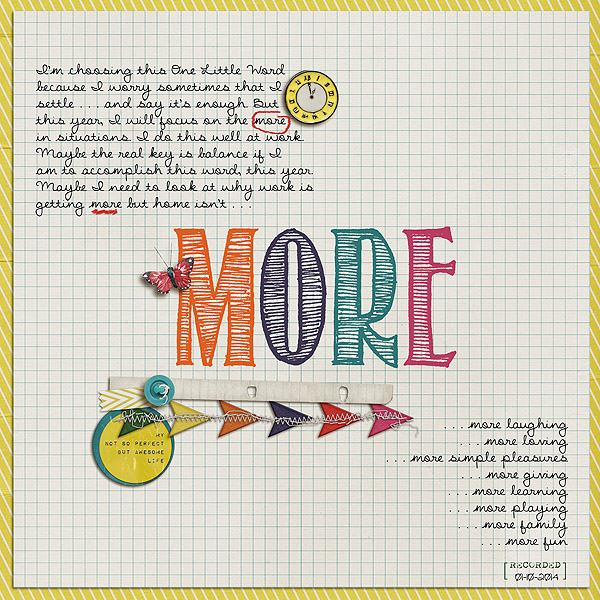 I'm choosing this One Little Word
because I worry sometimes that I
settle . . . and say it's enough. But
this year, I will focus on the more
in situations. I do this well at work.
Maybe the real key is balance if I
am to accomplish this word, this year.
Maybe I need to look at why work is
getting more but home isn't . . .
MORE
MY
NOT SO PERFECT
BUT AWESOME
LIFE
. . . more laughing
. . . more loving
. . . more simple pleasures
. . . more giving
. . . more learning
. . . more playing
. . . more family
. . . more fun
[RECORDED]
01-10-2014